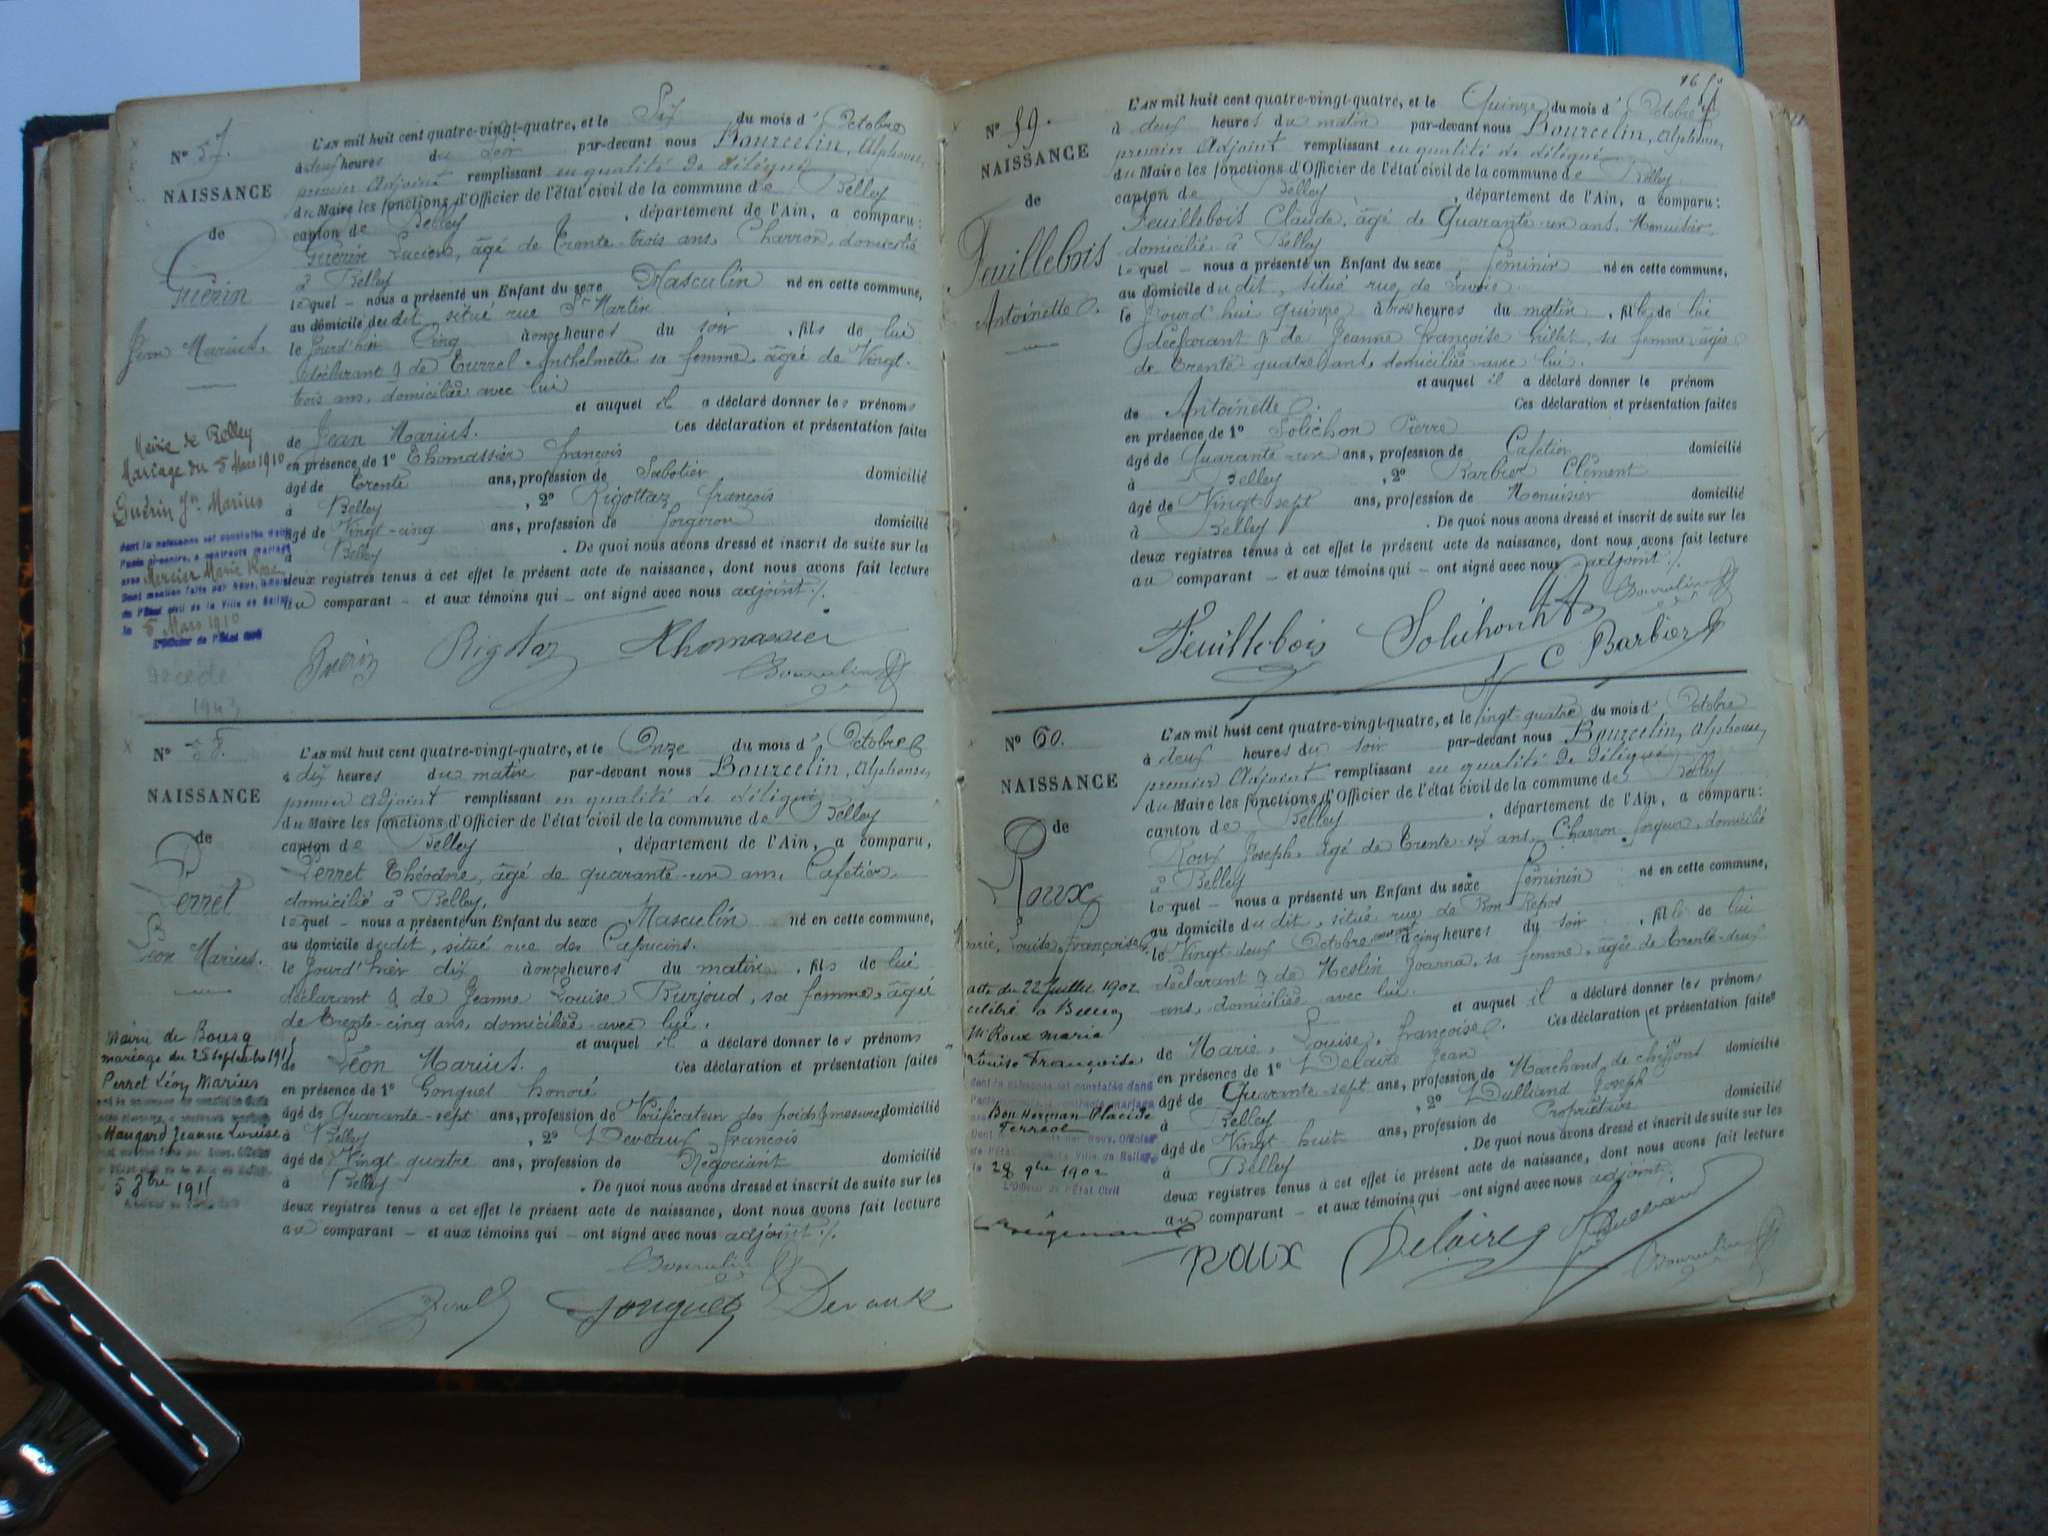 N° 57.
NAISSANCE
de
Guérin
Jean Marius.
L'AN mil huit cent quatre-vingt-quatre, et le Six du mois d' Octobre
à deux heures du soir par-devant nous Bourcelin, Alphonse,
premier Adjoint remplissant en qualité de délégué
du Maire les fonctions d'Officier de l'état civil de la commune de Belley
canton de Belley, département de l'Ain, a comparu:
Guérin Lucien, âgé de Trente-trois ans, Charron, domicilié
à Belley
lequel – nous a présenté un Enfant du sexe Masculin né en cette commune,
au domicile du dit, situé rue St Martin
le jourd'hier Cinq à onze heures du soir, fils de lui
déclarant & de Turrel Anthelmette sa femme, âgée de Vingt-
trois ans, domiciliée avec lui
et auquel il a déclaré donner les prénoms
de Jean Marius. Ces déclaration et présentation faites
en présence de 1° Thomassier françois
âgé de trente ans, profession de Sabotier domicilié
à Belley, 2° Rigottaz françois
âgé de Vingt-cinq ans, profession de forgeron domicilié
à Belley. De quoi nous avons dressé et inscrit de suite sur les
deux registres tenus à cet effet le présent acte de naissance, dont nous avons fait lecture
au comparant – et aux témoins qui – ont signé avec nous adjoint ./.
Mairie de Belley
Mariage du 5 Mars 1910
Guérin Jn Marius
dont la naissance est constatée dans
l'acte ci-contre, a contracté mariage
avec Mercier Marie Rose
Dont mention faite par Nous, Officier
de l'Etat civil de la Ville de Belley
le 8 Mars 1910
L'Officier de l'Etat Civil
décédé
Guérin Rigotaz Thomassier
Bourcelin
N° 58.
NAISSANCE
de
Perret
Léon Marius.
L'AN mil huit cent quatre-vingt-quatre, et le Onze du mois d' Octobre
à dix heures du matin par-devant nous Bourcelin, Alphonse,
premier Adjoint remplissant en qualité de délégué
du Maire les fonctions d'Officier de l'état civil de la commune de Belley
canton de Belley, département de l'Ain, a comparu,
Perret Théodore, âgé de quarante-un ans, Cafetier
domicilié à Belley,
lequel – nous a présenté un Enfant du sexe Masculin né en cette commune,
au domicile dudit, situé rue des Capucins.
le jourd'hier dix à onze heures du matin, fils de lui
déclarant & de Jeanne Louise Burjoud, sa femme, âgée
de trente-cinq ans, domiciliée avec lui.
et auquel il a déclaré donner les prénoms
de Léon Marius. Ces déclaration et présentation faites
en présence de 1° Gonguet honoré
âgé de Quarante-sept ans, profession de Vérificateur des poids & mesures, domicilié
à Belley, 2° Deveaux françois
âgé de Vingt quatre ans, profession de Négociant domicilié
à Belley. De quoi nous avons dressé et inscrit de suite sur les
deux registres tenus à cet effet le présent acte de naissance, dont nous avons fait lecture
au comparant – et aux témoins qui – ont signé avec nous adjoint ./.
Mairie de Bourg
mariage du 25 septembre 1911
Perret Léon Marius
Maugard Jeanne Louise
5 1911
Bourcelin
Perret Gonguet Devaux
N° 59.
NAISSANCE
de
Feuillebois
Antoinette.
L'AN mil huit cent quatre-vingt-quatre, et le Quinze du mois d' Octobre
à deux heures du matin par-devant nous Bourcelin, Alphonse,
premier Adjoint remplissant en qualité de délégué
du Maire les fonctions d'Officier de l'état civil de la commune de Belley
canton de Belley, département de l'Ain, a comparu:
Feuillebois Claude, âgé de Quarante un ans, Menuisier,
domicilié à Belley
lequel – nous a présenté un Enfant du sexe féminin né en cette commune,
au domicile du dit, situé rue de Savoie
le jourd'hui quinze à trois heures du matin, fille de lui
déclarant & de Jeanne françoise hillet, sa femme âgée
de Trente quatre ans, domiciliée avec lui.
et auquel il a déclaré donner le prénom
de Antoinette. Ces déclaration et présentation faites
en présence de 1° Solichon Pierre
âgé de Quarante un ans, profession de Cafetier domicilié
à Belley, 2° Barbier Clément
âgé de Vingt sept ans, profession de Menuisier domicilié
à Belley. De quoi nous avons dressé et inscrit de suite sur les
deux registres tenus à cet effet le présent acte de naissance, dont nous avons fait lecture
au comparant – et aux témoins qui – ont signé avec nous adjoint ./.
Bourcelin
Feuillebois Solichon C Barbier
N° 60.
NAISSANCE
de
Roux
Marie, Louise, françoise
L'AN mil huit cent quatre-vingt-quatre, et le Vingt-quatre du mois d' Octobre
à deux heures du soir par-devant nous Bourcelin, Alphonse,
premier Adjoint remplissant en qualité de délégué
du Maire les fonctions d'Officier de l'état civil de la commune de Belley
canton de Belley, département de l'Ain, a comparu:
Roux Joseph, âgé de trente-six ans, Charron-forgeur, domicilié
à Belley
lequel – nous a présenté un Enfant du sexe féminin né en cette commune,
au domicile du dit, situé rue de Bon Repos
le Vingt-deux Octobre courant à cinq heures du soir, fille de lui
déclarant & de Meslin Joanna, sa femme, âgée de trente-deux
ans, domiciliée avec lui.
et auquel il a déclaré donner les prénoms
de Marie, Louise, françoise. Ces déclaration et présentation faites
en présence de 1° Delaire Jean
âgé de Quarante-sept ans, profession de Marchand de chiffons domicilié
à Belley, 2° Dulliand Joseph
âgé de Vingt huit ans, profession de Propriétaire domicilié
à Belley. De quoi nous avons dressé et inscrit de suite sur les
deux registres tenus à cet effet le présent acte de naissance, dont nous avons fait lecture
au comparant – et aux témoins qui – ont signé avec nous adjoint ./.
acte du 22 Juillet 1902
célébré à Belley
Mlle Roux Maria
Louise Françoise
dont la naissance est constatée dans
l'acte ci-contre, a contracté mariage
avec Bon Herman Placide
Ferréol
Dont mention faite par Nous, Officier
de l'Etat civil de la Ville de Belley
le 28 9bre 1902
L'Officier de l'Etat Civil
Roux Delaire J Dulliand
Bourcelin